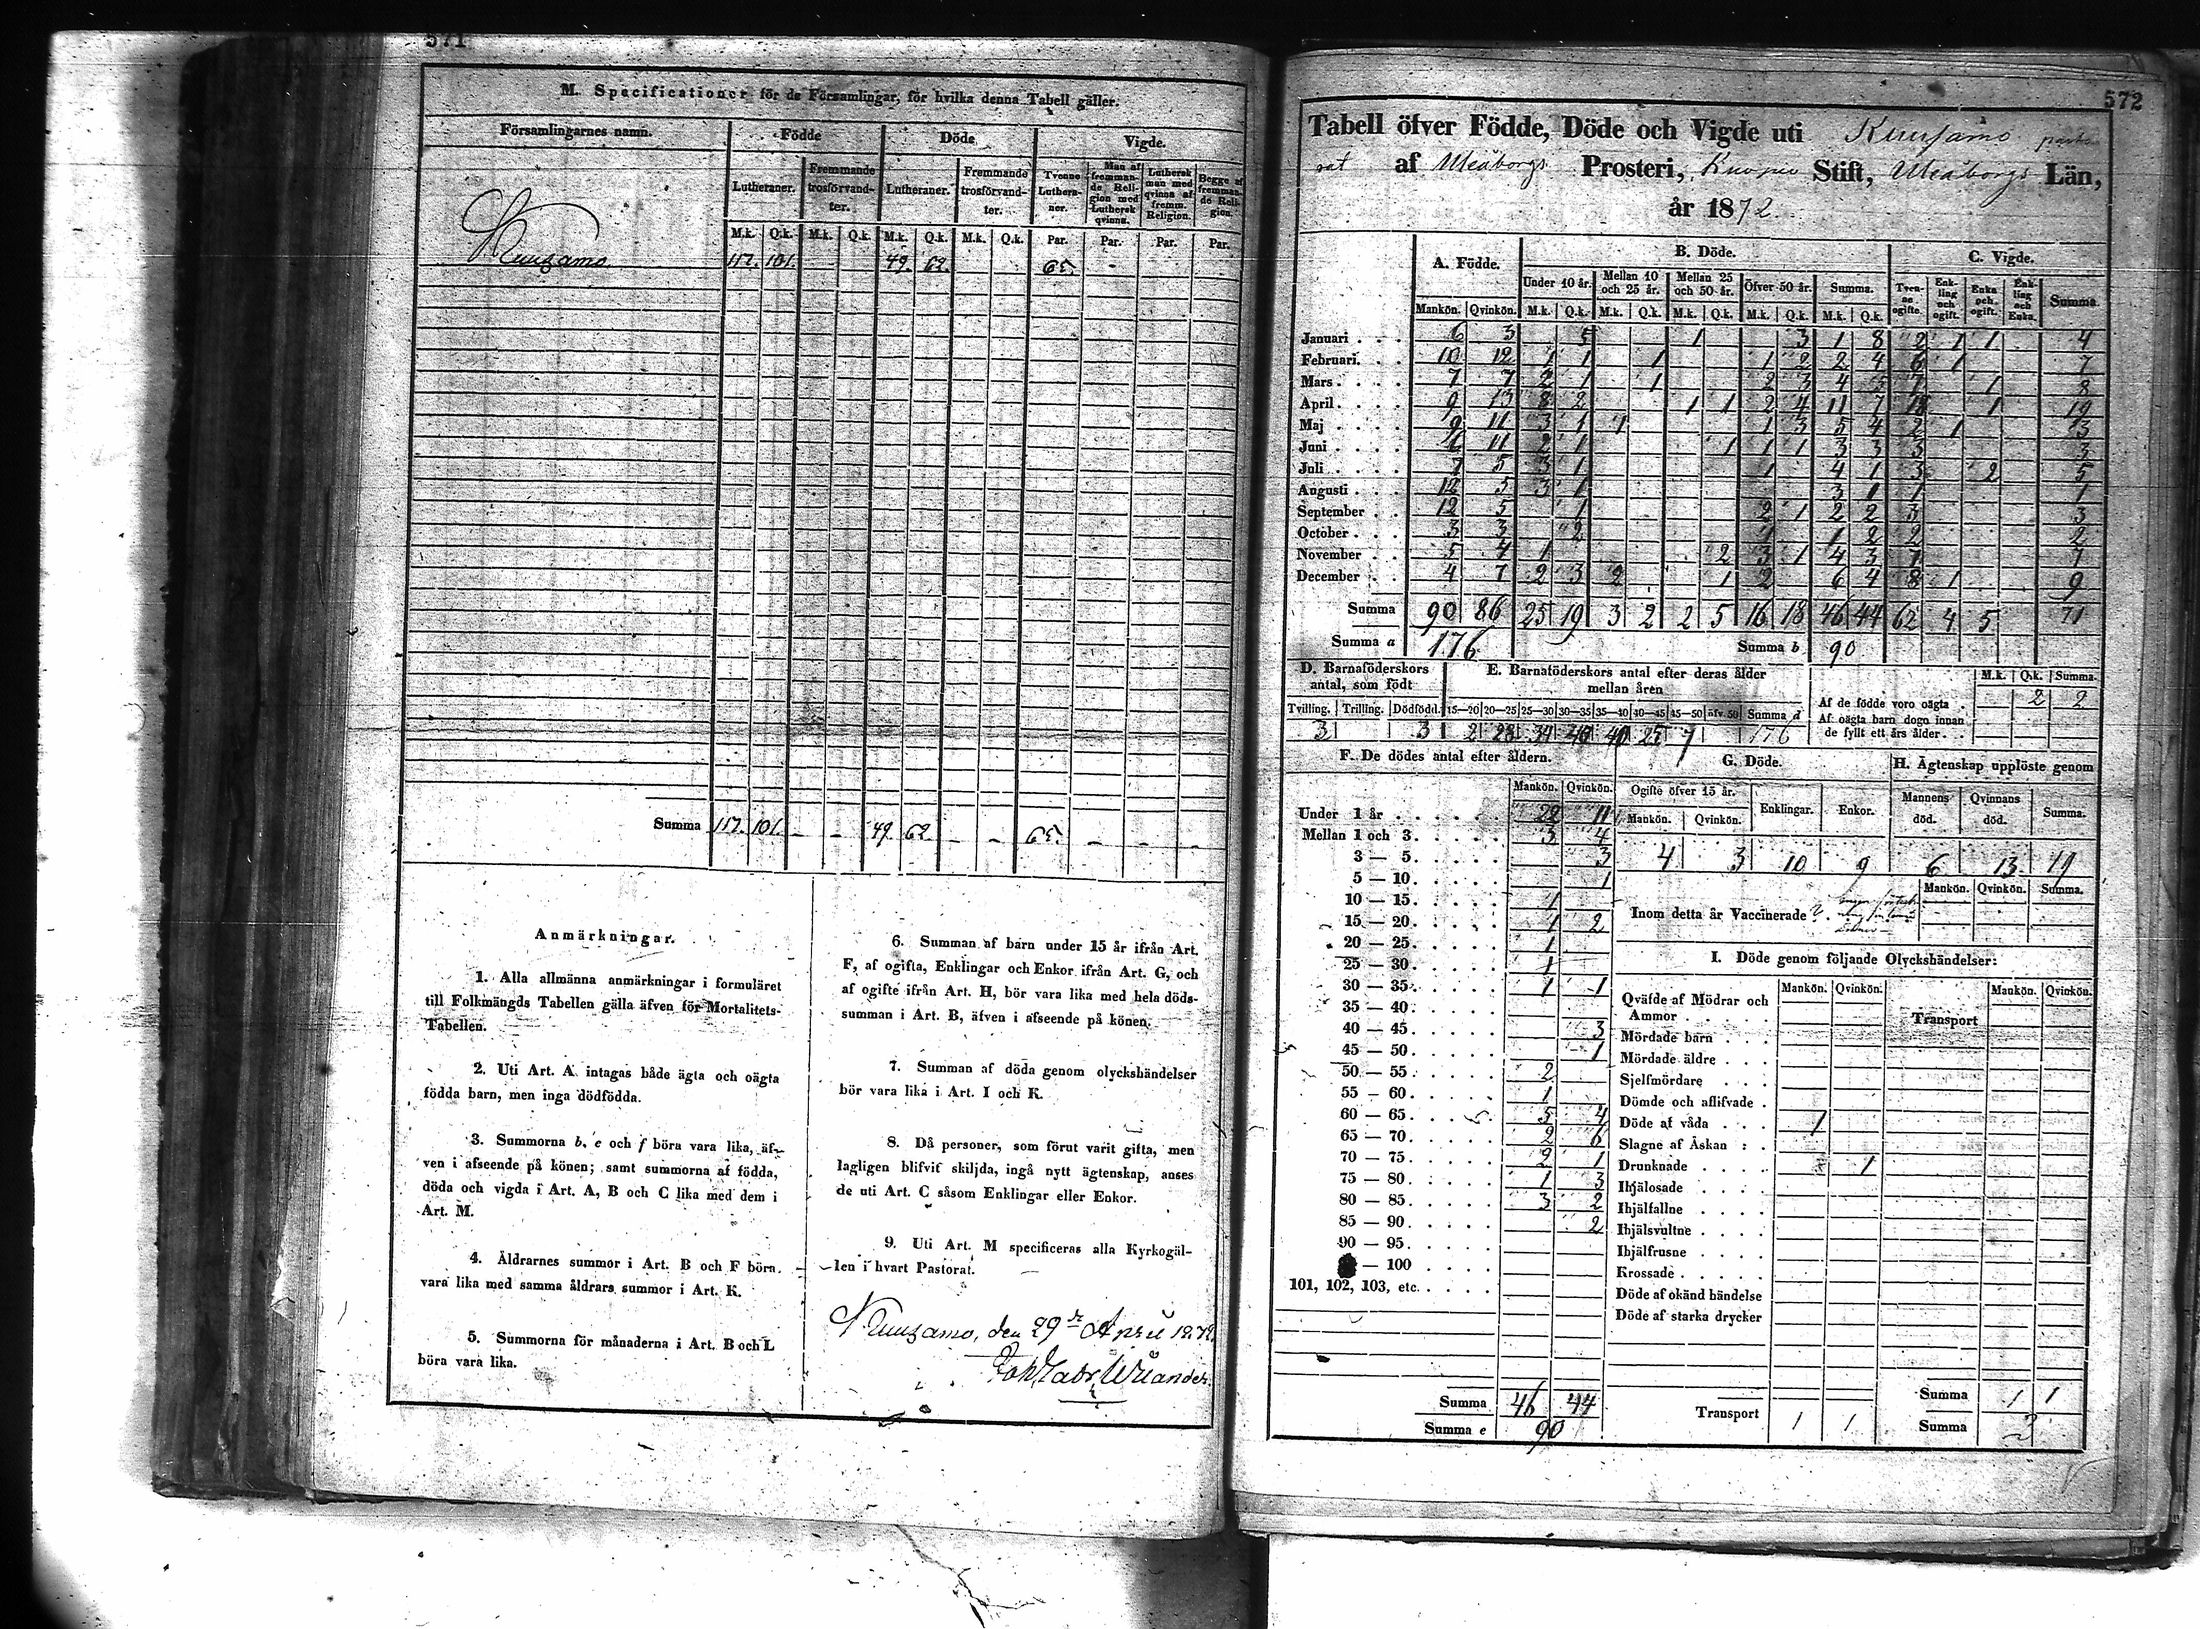 571
M. Specificationer för de Församlingar, för hvilka denna Tabell gäller.
Församlingarnes namn. Födde Döde Vigde.
Lutheraner. Fremmande trosförvandter. Lutheraner. Fremmande trosförvandter. Tvenne Lutheraner. Man af fremmande Religion med Luthersk qvinna. Luthersk man med qvinna af fremm. Religion. Begge af fremmande Religion.
M.k. Q.k. M.k. Q.k. M.k. Q.k. M.k. Q.k. Par. Par. Par. Par.
Kuusamo 117. 101. 49. 62. 65. -
Summa 117. 101. - - 49. 62. - - 65. - - -
Anmärkningar.
1. Alla allmänna anmärkningar i formuläret
till Folkmängds Tabellen gälla äfven för Mortalitets-
Tabellen.
2. Uti Art. A intagas både ägta och oägta
födda barn, men inga dödfödda.
3. Summorna b, e och f böra vara lika, äf-
ven i afseende på könen; samt summorna af födda,
döda och vigda i Art. A, B och C lika med dem i
Art. M.
4. Åldrarnes summor i Art. B och F böra
vara lika med samma åldrars summor i Art. K.
5. Summorna för månaderna i Art. B och L
böra vara lika.
6. Summan af barn under 15 år ifrån Art.
F, af ogifta, Enklingar och Enkor ifrån Art. G, och
af ogifte ifrån Art. H, bör vara lika med hela döds-
summan i Art. B, äfven i afseende på könen.
7. Summan af döda genom olyckshändelser
bör vara lika i Art. I och K.
8. Då personer, som förut varit gifta, men
lagligen blifvit skiljda, ingå nytt ägtenskap, anses
de uti Art. C såsom Enklingar eller Enkor.
9. Uti Art. M specificeras alla Kyrkogäl-
len i hvart Pastorat.
Kuusamo, den 29 April 1872.
572
Tabell öfver Födde, Döde och Vigde uti Kuusamo pasto
rat af Uleåborgs Prosteri, Kuopio Stift, Uleåborgs Län,
år 1872.
A. Födde. B. Döde. C. Vigde.
Under 10 år. Mellan 10 och 25 år. Mellan 25 och 50 år. Öfver 50 år. Summa. Tvenne ogifte. Enkling och ogift. Enka och ogift. Enkling och Enka. Summa
Mankön. Qvinkön. M.k. Q.k. M.k. Q.k. M.k. Q.k. M.k. Q.k. M.k. Q.k.
Januari 6 3 5 1 3 1 8 2 1 1 4
Februari. 10 12 1 1 1 1 2 2 4 6 1 7
Mars 7 7 2 1 1 2 3 4 5 7 1 8
April. 9 13 8 2 1 1 2 4 11 7 18 1 19
Maj 9 11 3 1 1 1 3 5 4 2 1 3
Juni 6 11 2 1 1 1 1 3 3 3 3
Juli 7 5 3 1 1 4 1 3 2 5
Augusti 12 5 3 1 3 1 1 1
September 12 5 1 2 1 2 2 3 3
October 3 3 2 1 1 2 2 2
November 5 4 1 2 3 1 4 3 7 7
December 4 7 2 3 2 1 2 6 4 8 1 9
Summa 90 86 25 19 3 2 2 5 16 18 46 44 62 4 5 71
Summa a 176 Summa b 90
D. Barnaföderskors antal, som födt
E. Barnaföderskors antal efter deras ålder mellan åren
Tvilling. Trilling. Dödfödd. 15—20 20—25 25—30 30—35 35—40 40—45 45—50 öfv. 50 Summa d
3 3 2 28 34 40 40 25 7 176
M.k. Q.k. Summa.
Af de födde voro oägta 2 2
Af oägta barn dogo innan
de fyllt ett års ålder
F. De dödes antal efter åldern.
Mankön. Qvinkön.
Under 1 år 22 11
Mellan 1 och 3. 3 4
3 — 5. 3
5 — 10. 1
10 — 15. 1
15 — 20. 1 2
20 — 25. 1
25 — 30. 1
30 — 35. 1 1
35 — 40.
40 — 45. 3
45 — 50. 1
50 — 55. 2
55 — 60. 1
60 — 65. 5 4
65 — 70. 2 6
70 — 75. 2 1
75 — 80. 1 3
80 — 85. 3 2
85 — 90. 2
90 — 95.
— 100
101, 102, 103, etc.
Summa 46 44
Summa e 90
G. Döde.
Ogifte öfver 15 år. Enklingar. Enkor.
Mankön. Qvinkön.
4 3 10 9
H. Ägtenskap upplöste genom
Mannens död. Qvinnans död. Summa.
6 13 19
Mankön. Qvinkön. Summa.
Inom detta år Vaccinerade ?
I. Döde genom följande Olyckshändelser:
Mankön. Qvinkön. Mankön. Qvinkön.
Qväfde af Mödrar och
Ammor Transport
Mördade barn
Mördade äldre
Sjelfmördare
Dömde och aflifvade
Döde af våda 1
Slagne af Åskan
Drunknade 1
Ihjälosade
Ihjälfallne
Ihjälsvultne
Ihjälfrusne
Krossade
Döde af okänd händelse
Döde af starka drycker
Transport 1 1
Summa 1 1
Summa 2